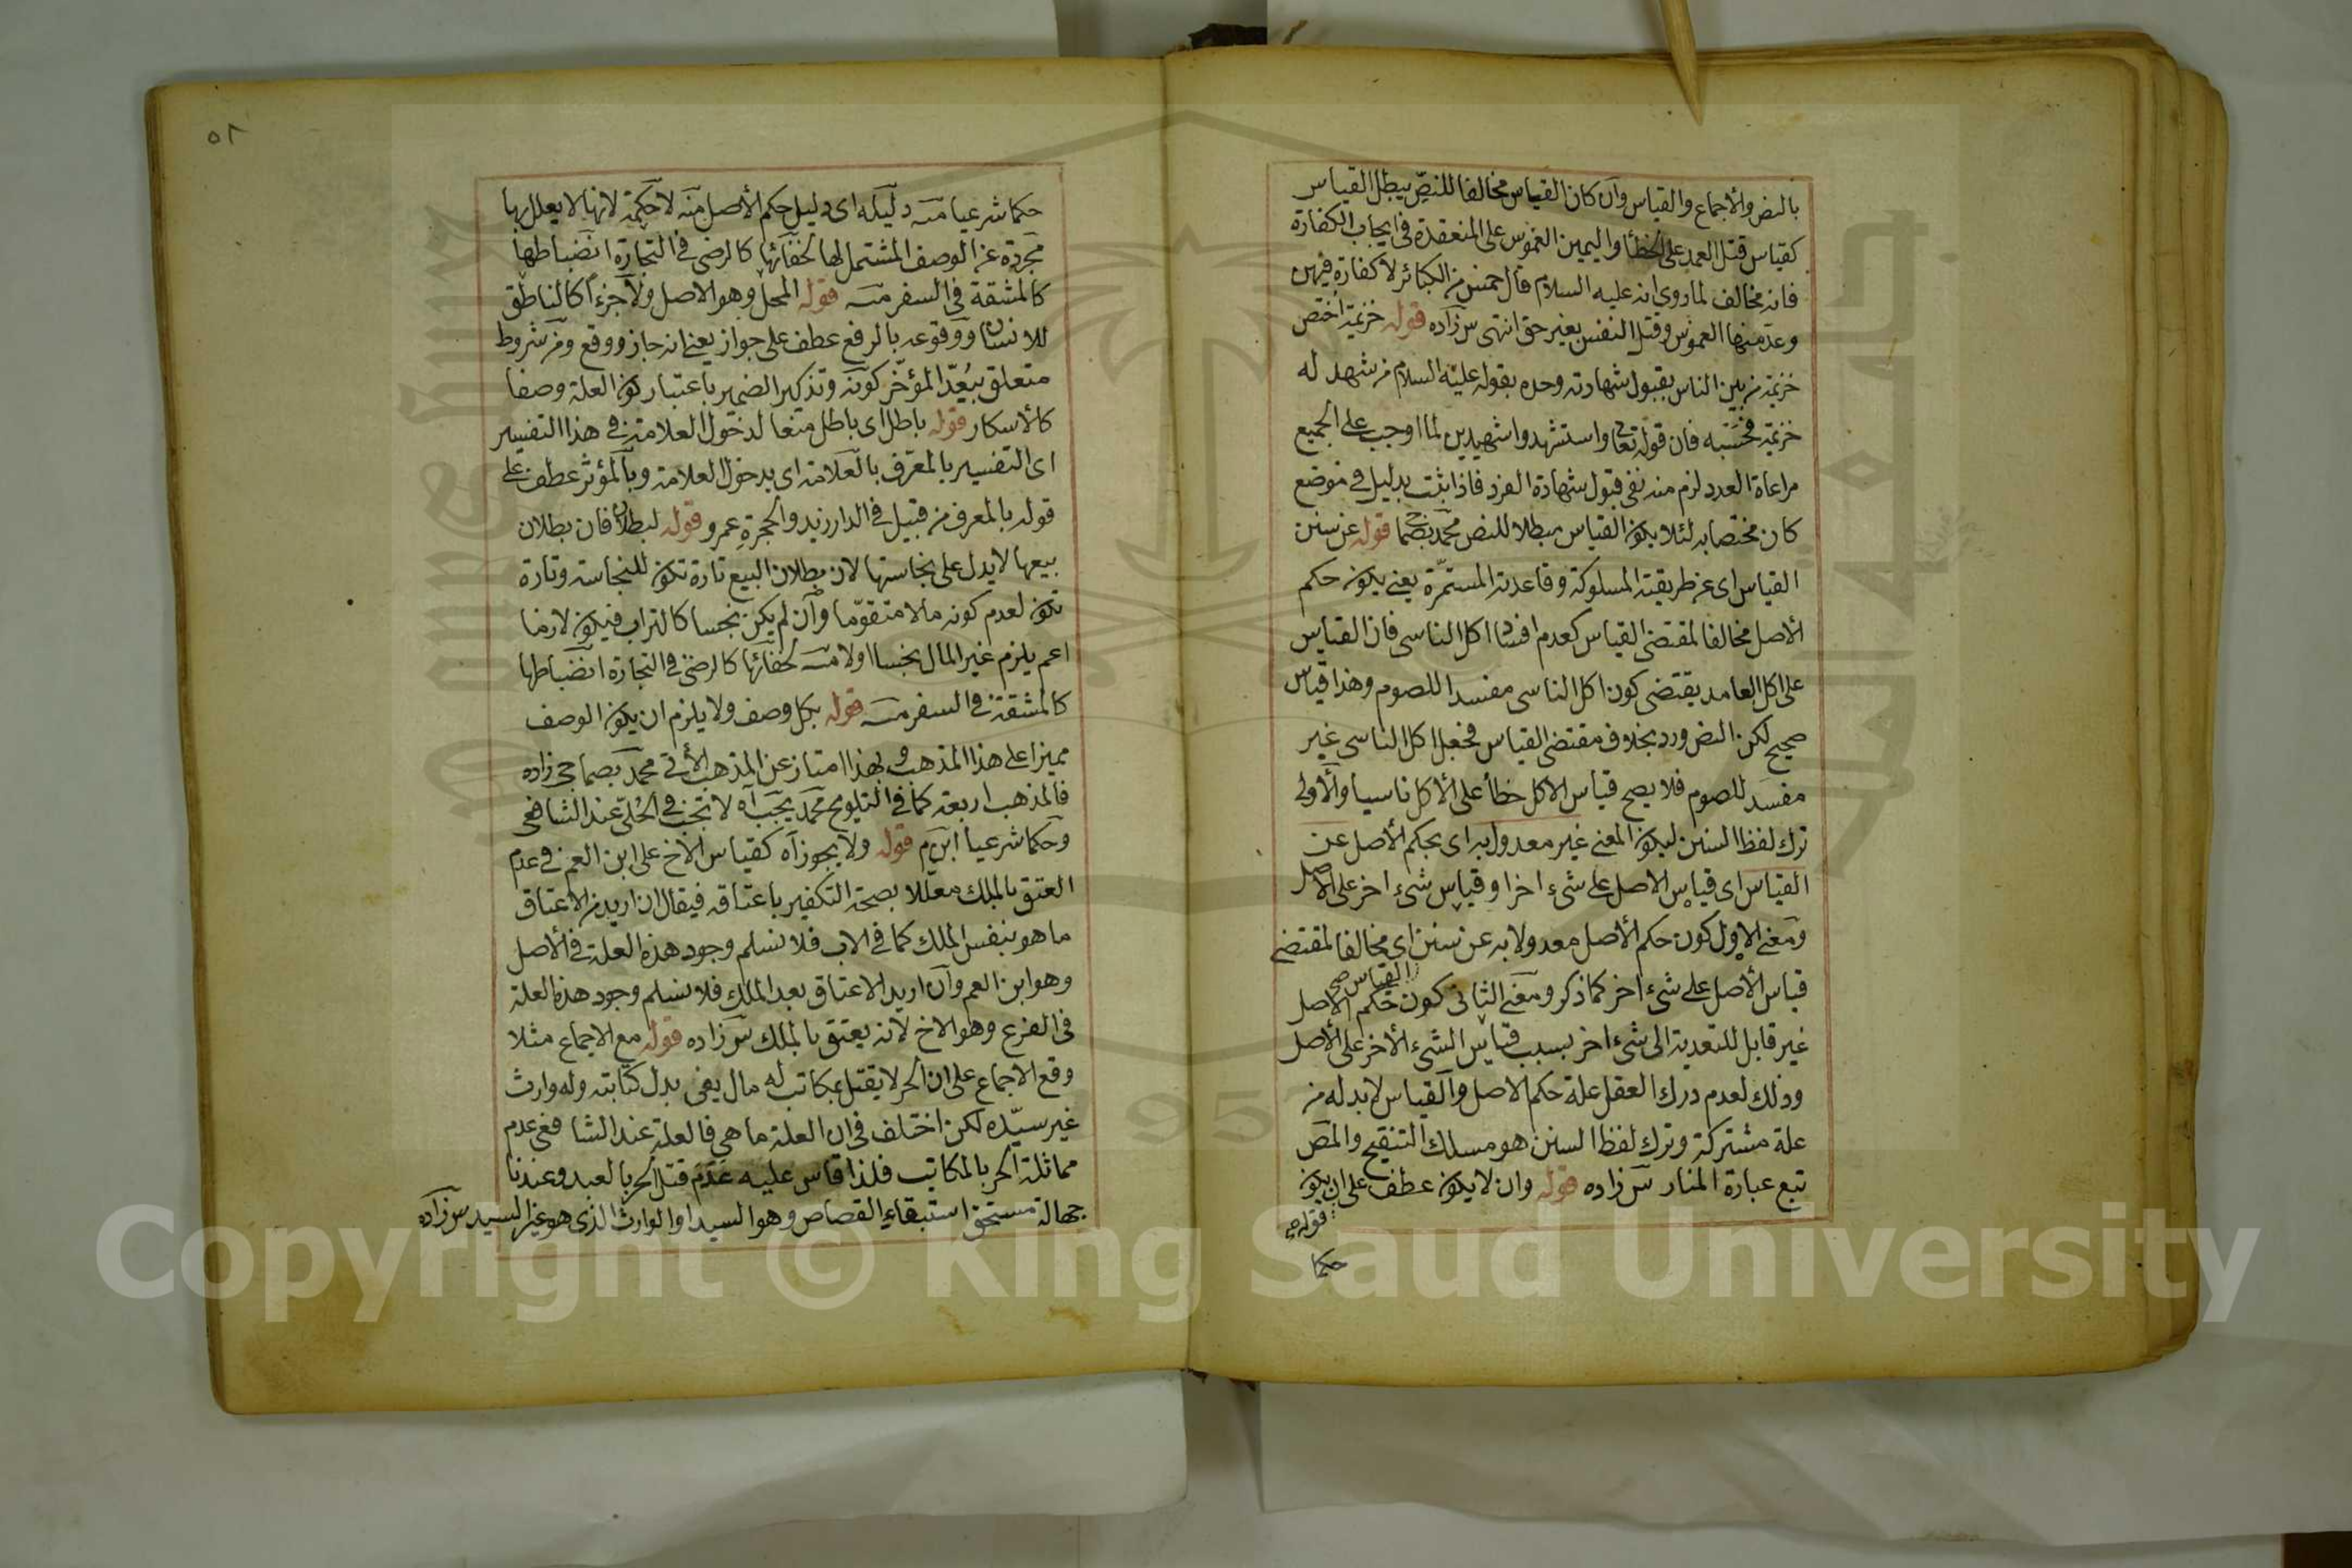 بالنص والأجماع والقياس وان كان القياس مخالفا للنص يبطل القياس
كقياس قتل العمد على الخطأ واليمين الغموس على المنعقدة فى ايجاب الكفارة
فانه مخالف لما روي انه عليه السلام قال خمس من الكبائر لا كفارة فيهن
وعد منها الغموس وقتل النفس بغير حق انتهى س زاده قوله خزيمة اختص
خزيمة من بين الناس بقبول شهادته وحده بقوله عليه السلام من شهد له
خزيمة فحسبه فان قوله تعا واستشهدوا شهيدين لما اوجب على الجميع
مراعاة العدد لزم منه نفى قبول شهادة الفرد فاذا ثبت بدليل فى موضع
كان مختصا به لئلا يكون القياس مبطلا للنص محمد بصما قوله عن سنن
القياس اى عن طريقته المسلوكة وقاعدته المستمرة يعنى يكون حكم
الأصل مخالفا لمقتضى القياس كعدم افساد اكل الناسى فان القياس
على اكل العامد يقتضى كون اكل الناسى مفسدا للصوم وهذا قياس
صحيح لكن النص ورد بخلاف مقتضى القياس فجعل اكل الناسى غير
مفسد للصوم فلا يصح قياس الاكل خطأ على الأكل ناسيا والأولى
ترك لفظ السنن ليكون المعنى غير معدول به اى بحكم الأصل عن
القياس اى قياس الاصل على شىء اخر او قياس شىء اخر على الاصل
ومعنى الاول كون حكم الأصل معدولا به عن سنن اى مخالفا لمقتضى
القياس صح
قياس الأصل على شىء اخر كما ذكر ومعنى الثانى كون حكم الاصل
غير قابل للتعدية الى شىء اخر بسبب قياس الشىء الأخر على الأصل
وذلك لعدم درك العقل علة حكم الاصل والقياس لا بد له من
علة مشتركة وترك لفظ السنن هو مسلك التنقيح والمص
تبع عبارة المنار س زاده قوله وان لا يكون عطف على ان يكون
قوله
حكما
٥٨
حكما شرعيا منه دليله اى دليل حكم الأصل منه لا حكمة لانها لا يعلل بها
مجردة عن الوصف المشتمل لها لخفائها كالرضى فى التجارة انضباطها
كالمشقة فى السفر منه قوله المحل وهو الاصل ولا جزءا كالناطق
للانسان ووقوعه بالرفع عطف على جواز يعنى انه جاز ووقع ومن شروط
متعلق بيعد المؤخر كونه وتذكير الضمير باعتبار كون العلة وصفا
كالأسكار قوله باطل اى باطل منعا لدخول العلامة فى هذا التفسير
اى التفسير بالمعرف بالعلامة اى بدخول العلامة وبالمؤثر عطف على
قوله بالمعرف من قبيل فى الدار زيد والحجرة عمرو قوله لبطلان فان بطلان
بيعها لا يدل على نجاستها لان بطلان البيع تارة تكون للنجاسة وتارة
تكون لعدم كونه مالا متقوما وان لم يكن نجسا كالتراب فيكون لازما
اعم يلزم غير المال نجسا اولا منه لخفائها كالرضى فى التجارة انضباطها
كالمشقة فى السفر منه قوله بكل وصف ولا يلزم ان يكون الوصف
مميزا على هذا المذهب وبهذا امتاز عن المذهب الأتى محمد بصماجى زاده
فالمذهب اربعة كما فى التلويح محمد يجب آه لا تجب فى الحلى عند الشافعى
وحكما شرعيا ابن م قوله ولا يجوز آه كقياس الأخ على ابن العم فى عدم
العتق بالملك معللا بصحة التكفير باعتاقه فيقال ان اريد من الاعتاق
ما هو بنفس الملك كما فى الاب فلا نسلم وجود هذه العلة فى الأصل
وهو ابن العم وان اريد الاعتاق بعد الملك فلا نسلم وجود هذه العلة
فى الفرع وهو الاخ لانه يعتق بالملك س زاده قوله مع الاجماع مثلا
وقع الاجماع على ان الحر لا يقتل بمكاتب له مال يفى بدل كتابته وله وارث
غير سيده لكن اختلف فى ان العلة ما هى فالعلة عند الشافعى عدم
مماثلة الحر بالمكاتب فلذا قاس عليه عدم قتل الحر بالعبد وعندنا
جهالة مستحق استبقاء القصاص وهو السيد او الوارث الذى هو غير السيد س زاده
Copyright © King Saud University